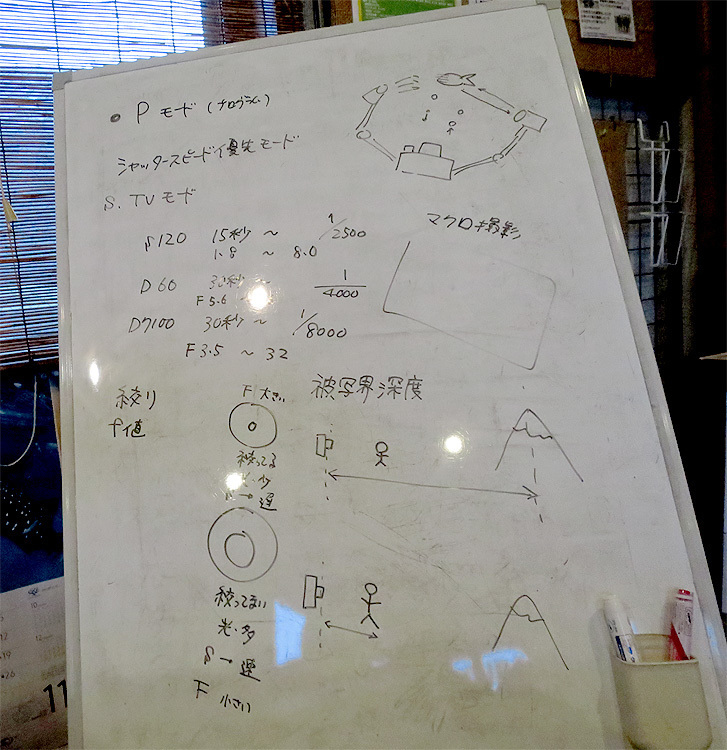 • P モード (プログラム)
シャッタースピード優先モード
S. TV モード
P120 15秒 ～ 1/2500
1.8 ～ 8.0
D60 30秒 ～ 1/4000
F5.6
D7100 30秒 ～ 1/8000
F3.5 ～ 32
マクロ撮影
絞り
f値
F 大きい
被写界深度
絞ってる
光・少
→ 遅
絞ってない
光・多
S → 速
F 小さい
11